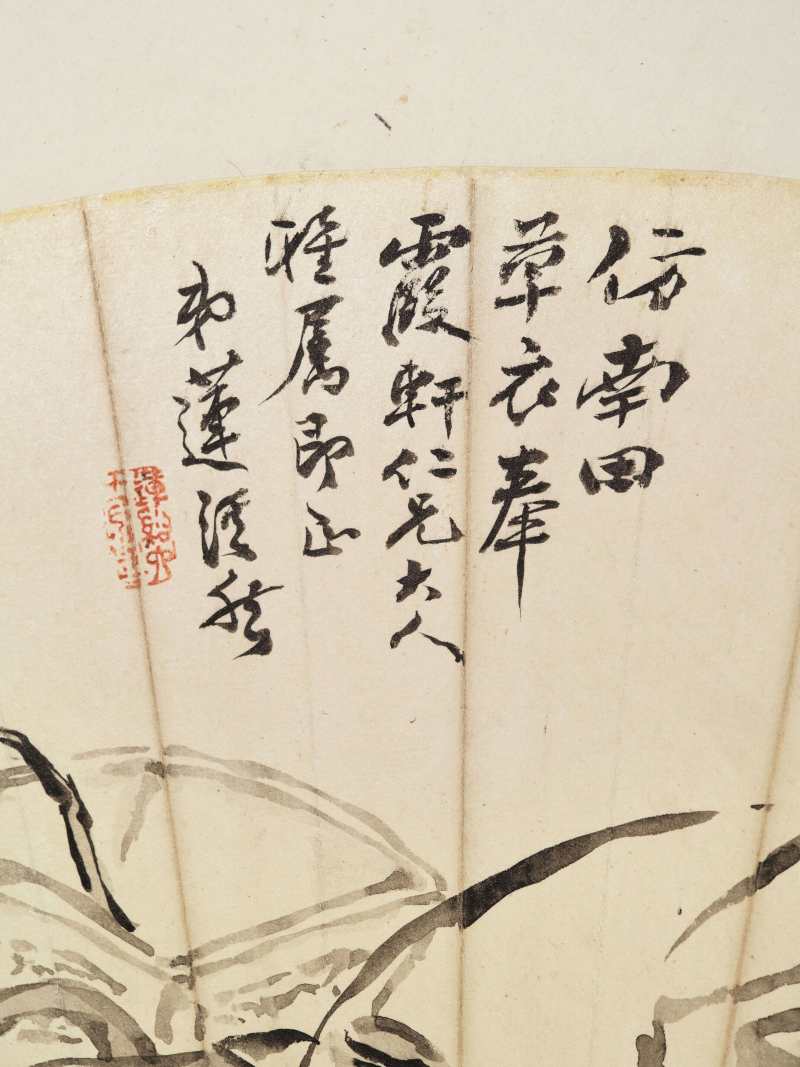 仿南田
草衣奉
霞軒仁兄大人
雅屬即正
弟蓮溪